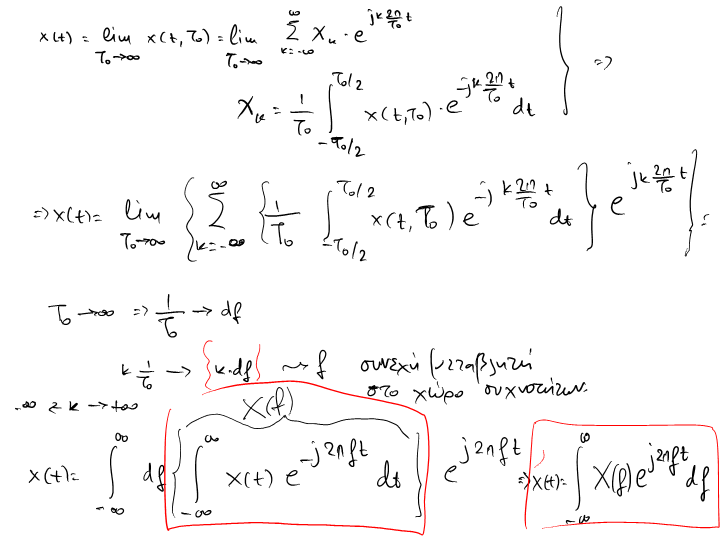 x(t) = lim_{T₀→∞} x(t, T₀) = lim_{T₀→∞} Σ_{k=-∞}^{∞} X_k · e^{jk\frac{2π}{T₀}t}
X_k = \frac{1}{T₀} ∫_{-T₀/2}^{T₀/2} x(t,T₀) · e^{-jk\frac{2π}{T₀}t} dt } ⇒
⇒ x(t) = lim_{T₀→∞} { Σ_{k=-∞}^{∞} { \frac{1}{T₀} ∫_{-T₀/2}^{T₀/2} x(t, T₀) e^{-jk\frac{2π}{T₀}t} dt } e^{jk\frac{2π}{T₀}t} } =
T₀ → ∞ ⇒ \frac{1}{T₀} → df
k \frac{1}{T₀} → {k·df} ⤳ f συνεχή μεταβλητή
στο χώρο συχνοτήτων.
-∞ ≤ k → +∞
X(f)
x(t) = ∫_{-∞}^{∞} df { ∫_{-∞}^{∞} x(t) e^{-j2πft} dt } e^{j2πft} ⇒ x(t) = ∫_{-∞}^{∞} X(f) e^{j2πft} df